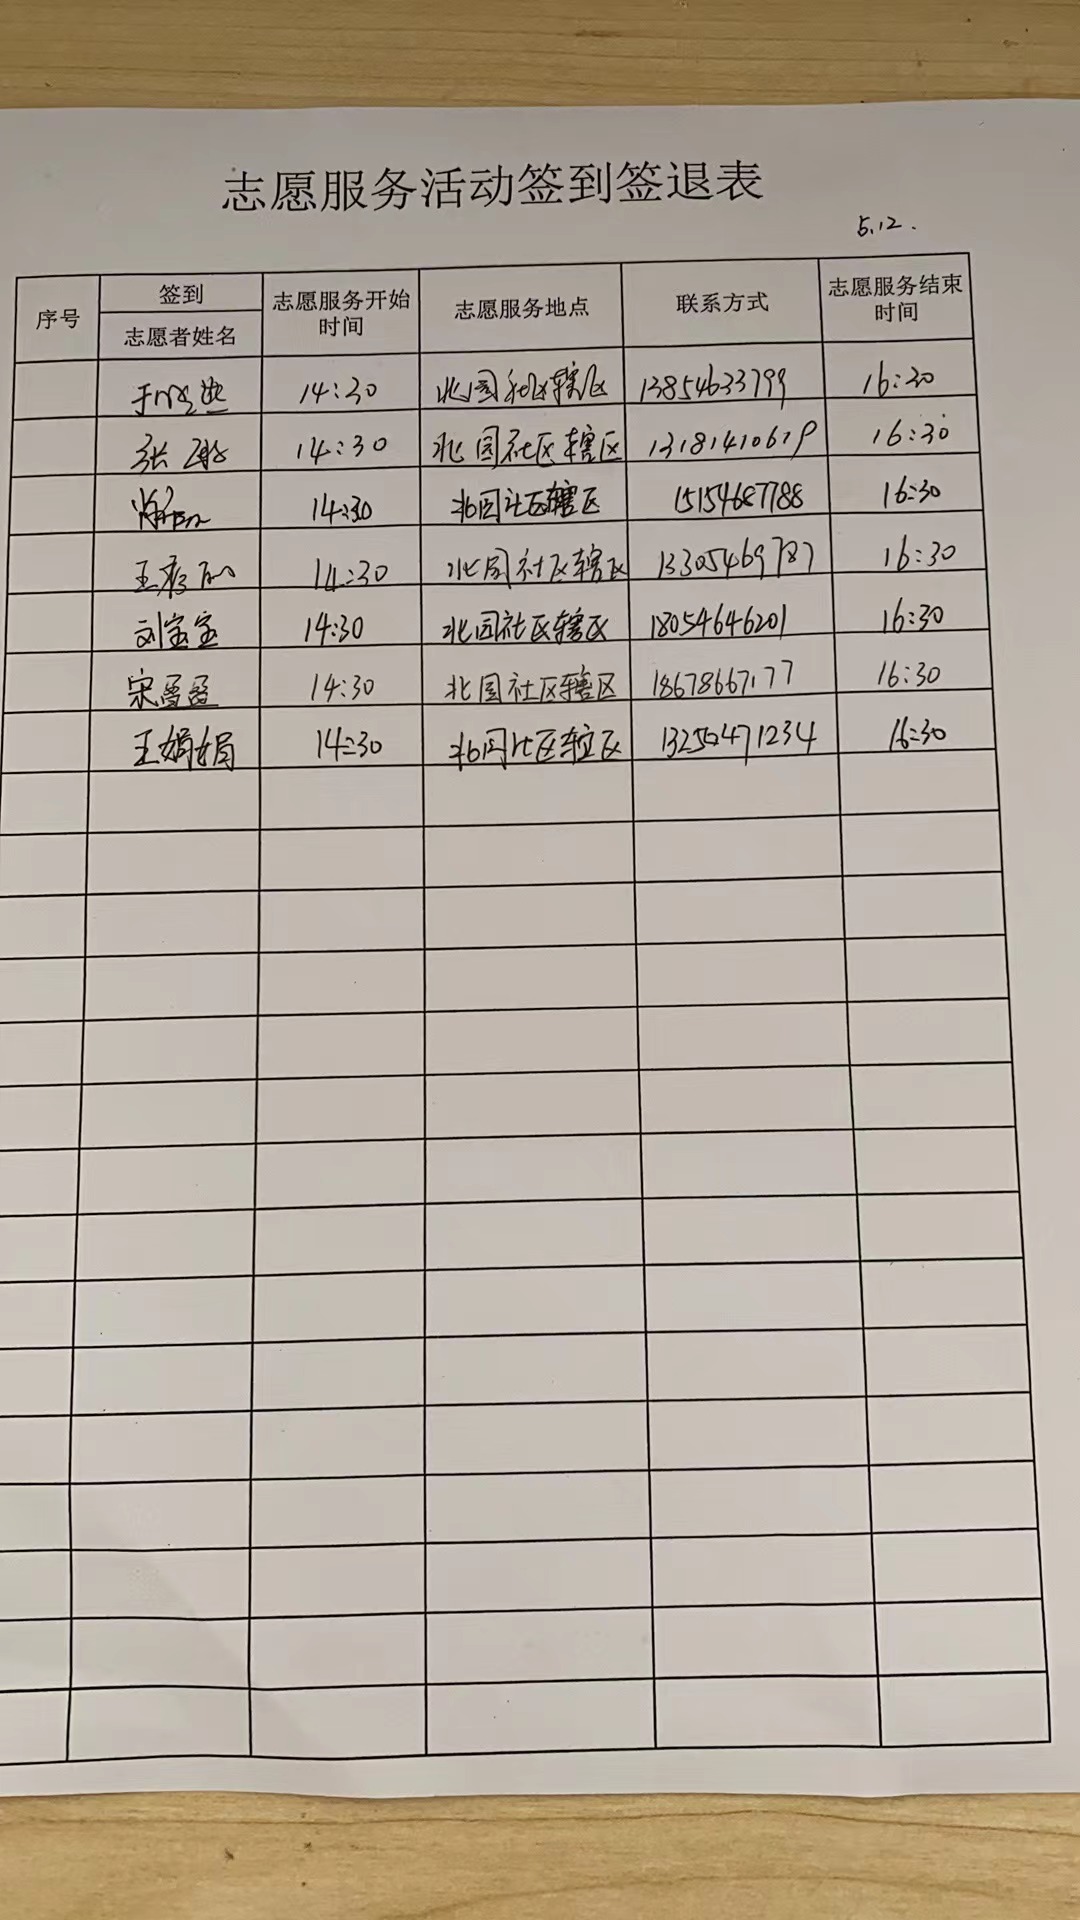 志愿服务活动签到签退表
5.12.
序号 签到 志愿者姓名 志愿服务开始时间 志愿服务地点 联系方式 志愿服务结束时间
14:30 北国社区辖区 13854633799 16:30
张 14:30 北国社区辖区 13181410619 16:30
14:30 北国社区辖区 15154687788 16:30
王 14:30 北国社区辖区 13305469787 16:30
刘宝宝 14:30 北国社区辖区 18054646201 16:30
宋晋晋 14:30 北国社区辖区 18678667177 16:30
王娟娟 14:30 北国社区辖区 13250471234 16:30